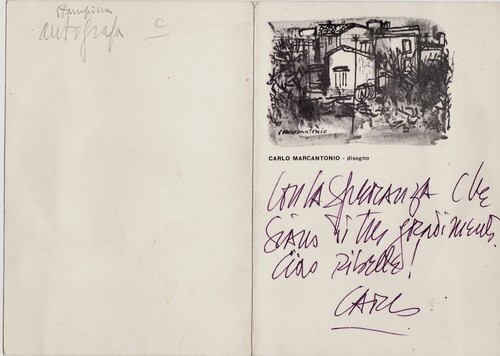 stampina
autografa c
Marcantonio
CARLO MARCANTONIO - disegno
Con la speranza che
siano di tuo gradimento.
Ciao ribelle!
CARLO